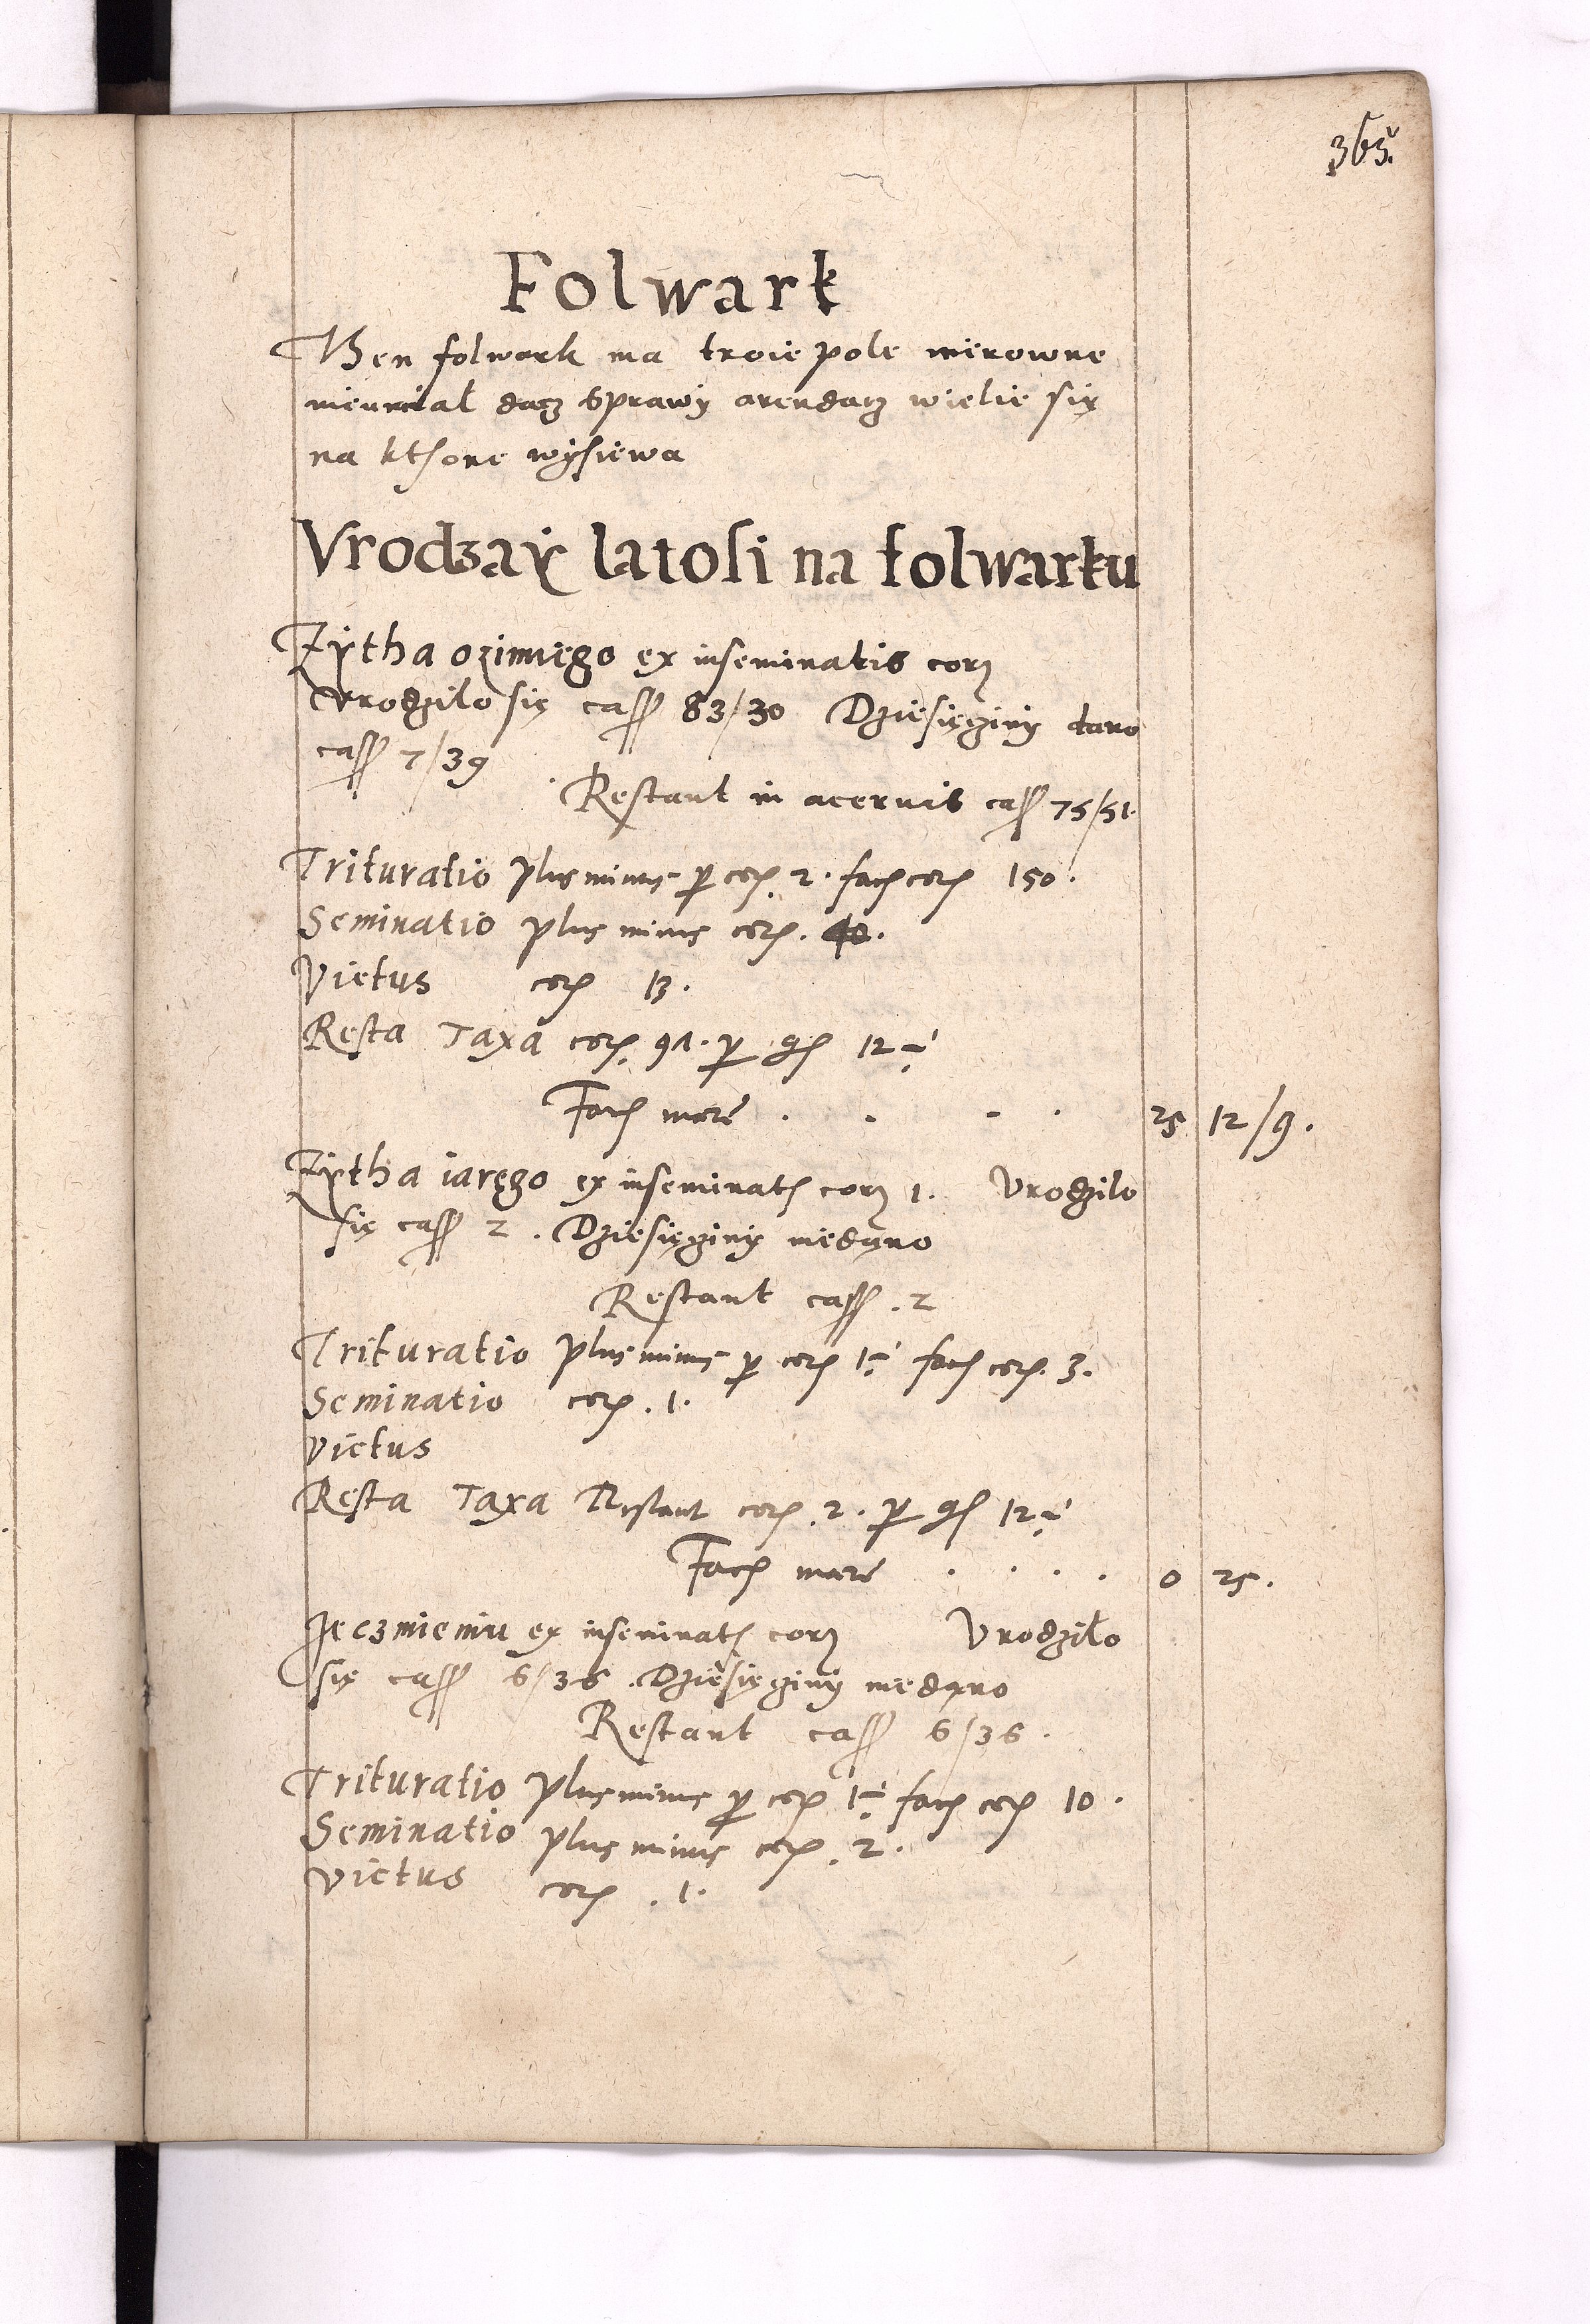 363.
Folwark
Then folwark ma troie pole nierowne
nieumial dacz sprawy arendarz wielie się
na kthore wysiewa
Vrodzaÿ latosi na folwarku
Zytha ozimiego ex inseminatis cor
vrodzilo się cass 83/30 Dziesięciny dano
cass 7/39
Restant in acervis cass 75/51.
Trituratio plus minus p cor. 2. fac cor 150.
Seminatio plus minus cor. 40.
Victus cor 13.
Resta Taxa cor. 97. p gs 12 ÷
Fac marc . . - . 25 12/9.
Zytha iarego ex inseminat cor 1. Vrodzilo
się cass 2. Dziesięciny niedano
Restant cass. 2
Trituratio plus minus p cor 1 ÷ fac cor. 3.
Seminatio cor. 1.
Victus
Resta Taxa Restant cor. 2. p gs 12 ÷
Fac marc . . . . 0 25.
Jeczmieniu ex inseminat cor Vrodzilo
się cass 6/36. Dziesięciny niedano
Restant cass 6/36.
Trituratio plus minus p cor 1 ÷ fac cor 10.
Seminatio plus minus cor. 2.
Victus cor. 1.